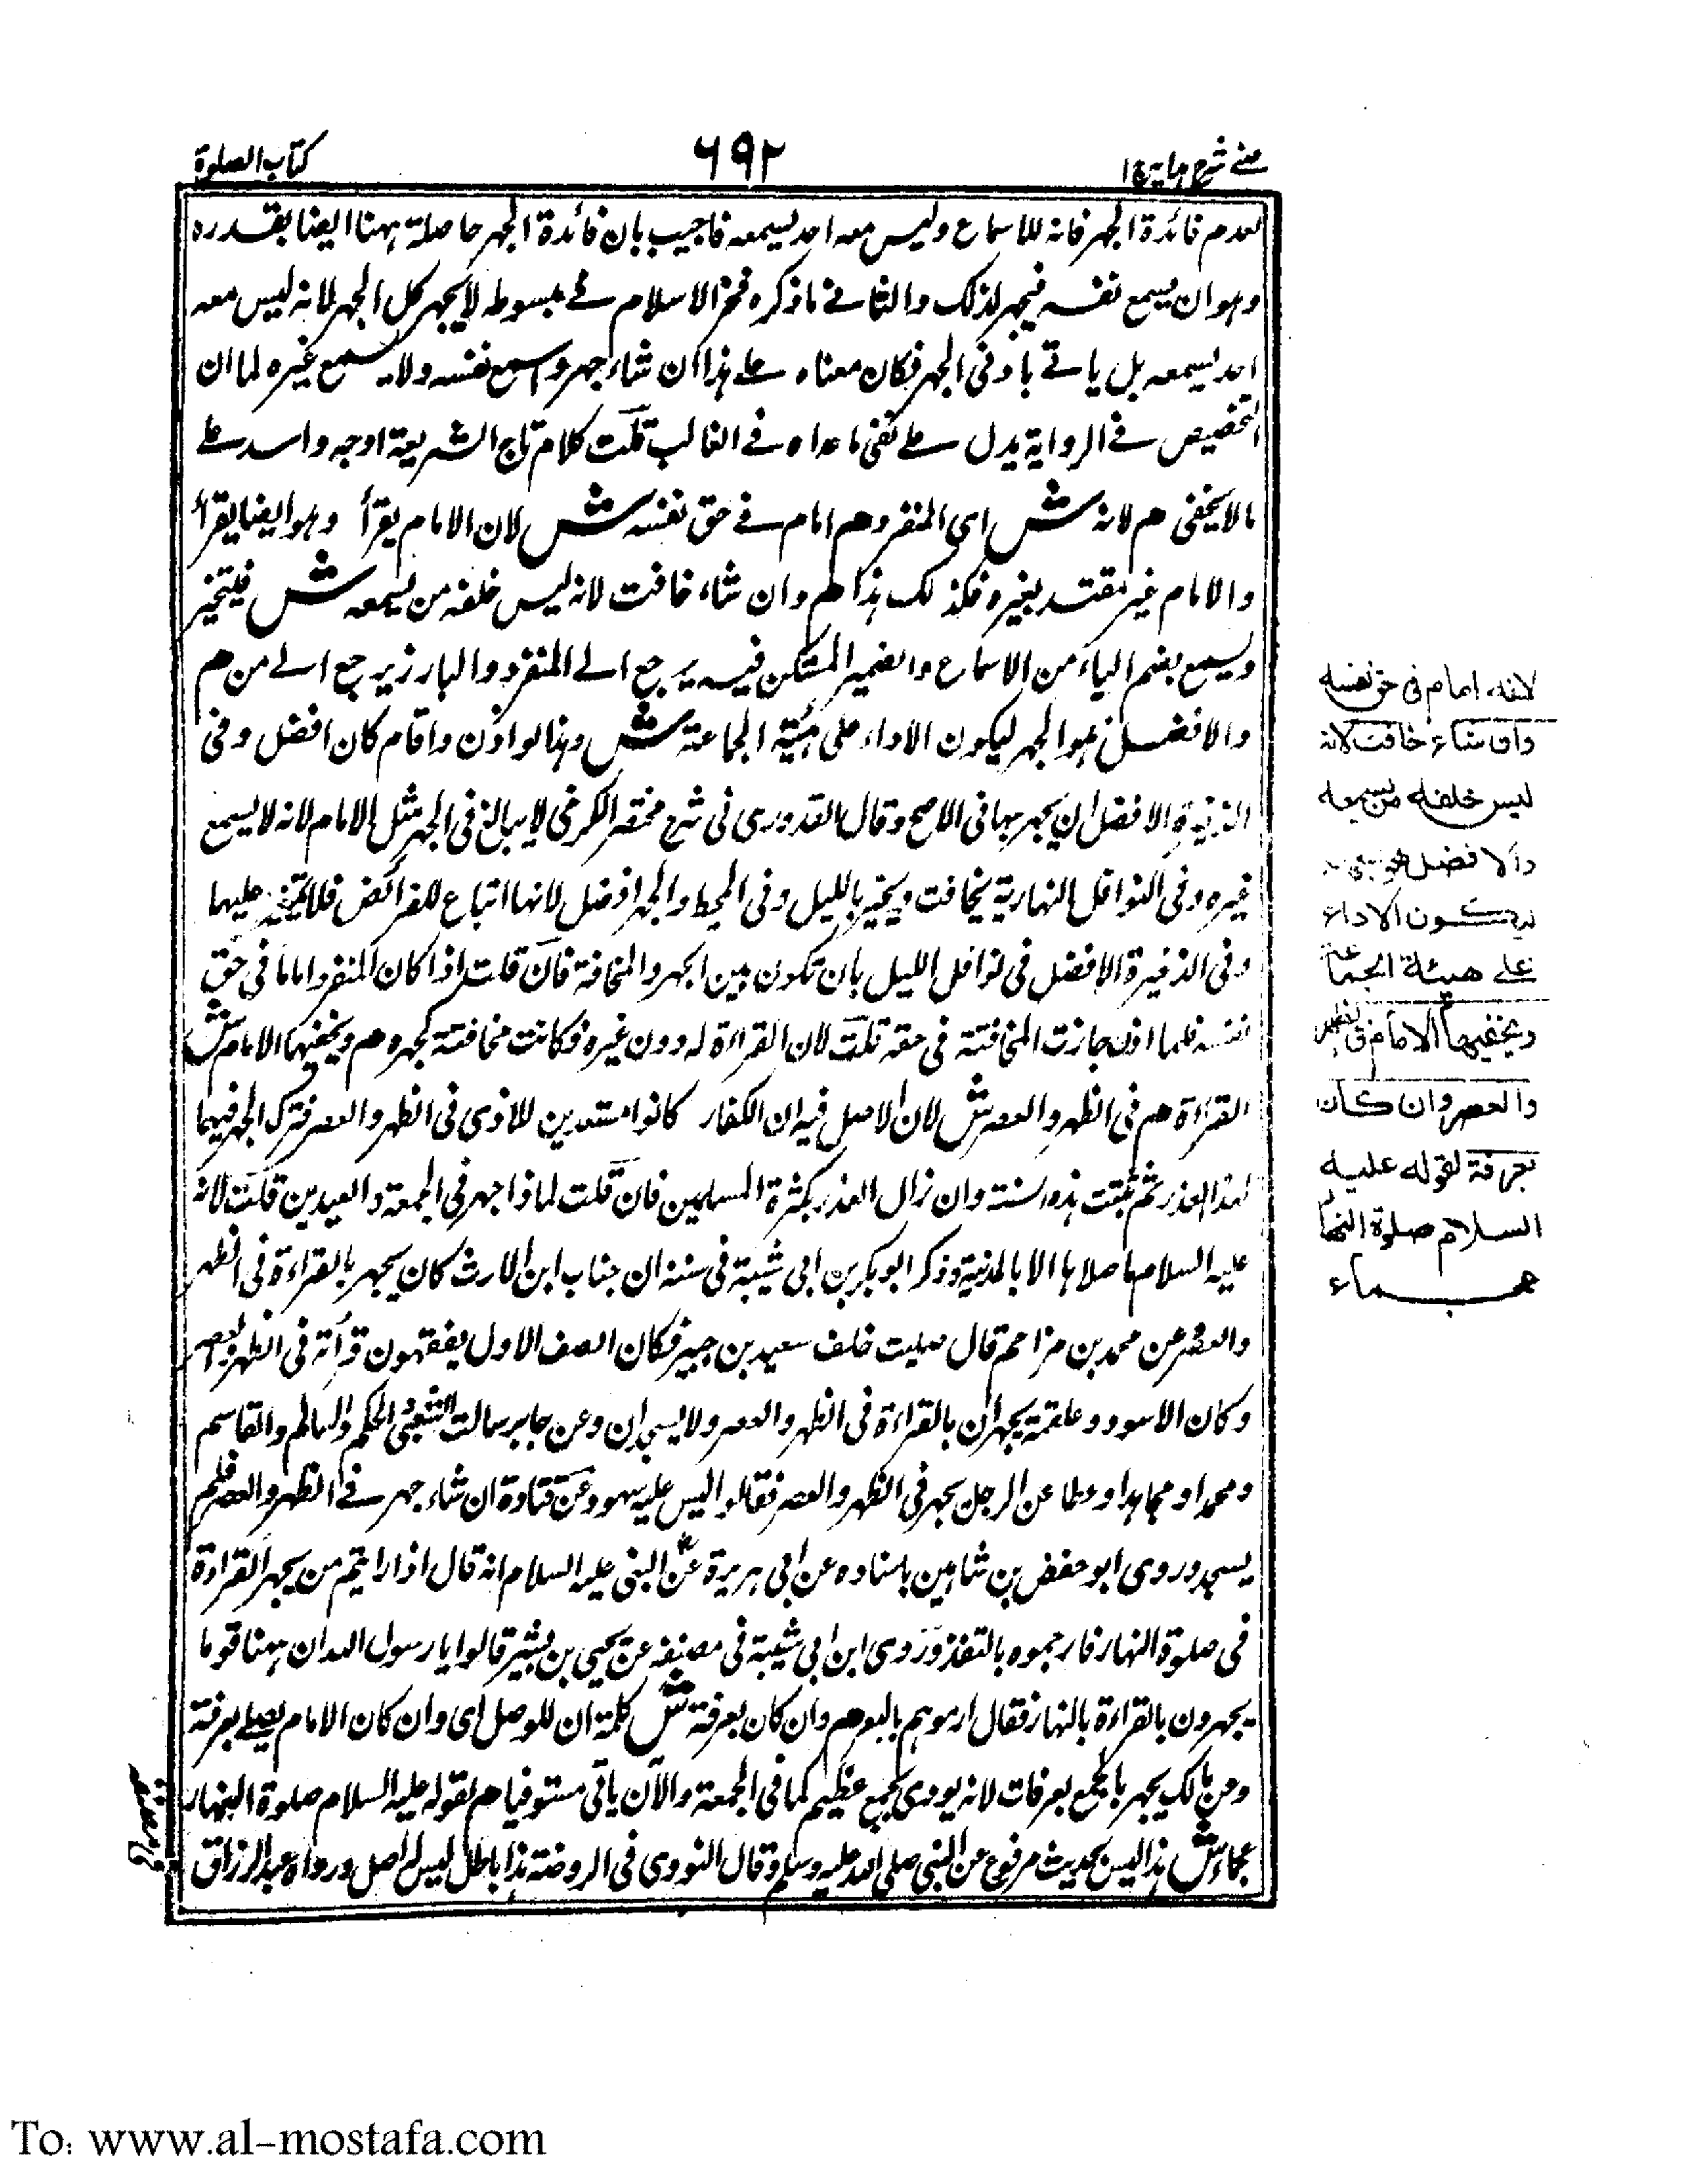 عينے شرح ہدایہ ج۱
۶۹۲
کتاب الصلوة
لعدم فائدة الجهر فانه للاسماع وليس معه احد يسمعه فاجيب بان فائدة الجهر حاصلة ههنا ايضا بقدره
وهو ان يسمع نفسه فيجهر لذلك والثانے ما ذكره فخر الاسلام نے مبسوطه لا يجهر كل الجهر لانه ليس معه
احد يسمعه بل ياتے بادنى الجهر فكان معناه علے هذا ان شاء جهر واسمع نفسه ولا يسمع غيره لما ان
التخصيص نے الرواية يدل علے نفى ما عداه نے الغالب قلت كلام تاج الشريعة اوجه واسد علے
ما لا يخفى هم لانه ش اى المنفرد هم امام نے حق نفسه ش لان الامام يقرأ وهو ايضا يقرأ
والامام غير مقتد بغيره فكذلك هذا هم وان شاء خافت لانه ليس خلفه من يسمعه ش فيتخير
ويسمع بضم الياء من الاسماع والضمير المستكن فيه يرجع الے المنفرد والبارز يرجع الے من هم
والافضل هو الجهر ليكون الاداء على هيئة الجماعة ش ولهذا لو اذن واقام كان افضل وفى
الذخيرة الافضل ان يجهر بها فى الاصح وقال القدورى فى شرح مختصر الكرخى لا يبالغ فى الجهر مثل الامام لانه لا يسمع
غيره وفى النوافل النهارية يخافت ويتخير بالليل وفى المحيط والجهر افضل لانها اتباع للفرائض فلا عليهما
وفى الذخيرة الافضل فى نوافل الليل بان تكون بين الجهر والمخافة فان قلت اذا كان المنفرد اماما فى حق
نفسه فلماذا جازت المخافتة فى حقه قلت لان القراءة له دون غيره فكانت مخافتة كجهره هم ويخفيها الامام ش
القراءة هم فى الظهر والعصر ش لان الاصل فيه ان الكفار كانوا مستعدين للاذى فى الظهر والعصر فترك الجهر فيهما
لهذا العذر ثم ثبتت هذه السنة وان زال العذر بكثرة المسلمين فان قلت لماذا جهر فى الجمعة والعيدين قلت لانه
عليه السلام ما صلاها الا بالمدينة وذكر ابو بكر بن ابى شيبة فى سننه ان جناب ابن الارث كان يجهر بالقراءة فى الظهر
والعصر عن محمد بن مزاحم قال صليت خلف سعيد بن جبير فكان الصف الاول يفقهون قرأته فى الظهر والعصر
وكان الاسود وعلقمة يجهران بالقراءة فى الظهر والعصر ولا يسجدان وعن جابر سالت الشعبى والحكم والسالم والقاسم
ومحمدا ومجاهدا وعطا عن الرجل يجهر فى الظهر والعصر فقالوا ليس عليه سهو وعن قتادة ان شاء جهر نے الظهر والعصر فلم
يسجد وروى ابو حفص بن شاهين باسناده عن ابى هريرة عن النبى عليه السلام انه قال اذا رايتم من يجهر القراءة
فى صلوة النهار فارجموه وروى ابن ابى شيبة فى مصنفه عن يحيى بن بشير قالوا يا رسول الله ان ههنا قوما
يجهرون بالقراءة بالنهار فقال ارموهم بالبعر هم وان كان بعرفة ش كلمة ان للوصل اى وان كان الامام يصلے بعرفة
وعن مالك يجهر بالجمع بعرفات لانه يودى بجمع عظيم كما فى الجمعة والآن ياتى مستوفيا هم لقوله عليه السلام صلوة النهار
عجماء ش هذا ليس بحديث مرفوع عن النبى صلى الله عليه وسلم وقال النووى فى الروضة هذا باطل ليس له اصل ورواه عبد الرزاق
لانه امام فى حق نفسه
وان شاء خافت لانه
ليس خلفه من يسمعه
والافضل هو الجهر
ليكون الاداء
على هيئة الجماعة
ويخفيها الامام فى الظهر
والعصر وان كان
بعرفة لقوله عليه
السلام صلوة النهار
عجماء
To: www.al-mostafa.com